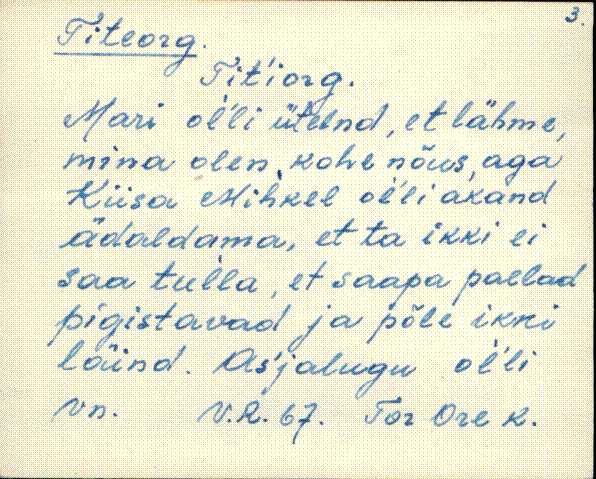 3.
Titeorg.
Tit'iorg.
Mari ol'li ütelnd, et lähme,
mina olen kohe nõus, aga
Kiisa Mihkel ol'li akand
ädaldama, et ta ikki ei
saa tulla, et saapa paelad
pigistavad ja põle ikki
läind. As'jalugu ol'li
vn. V.R. 67. Tor Ore k.